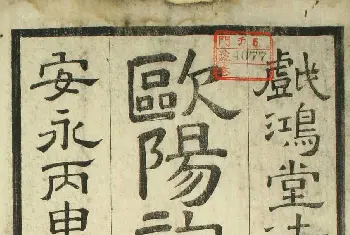 戱鴻堂
歐陽
安永丙申
4077